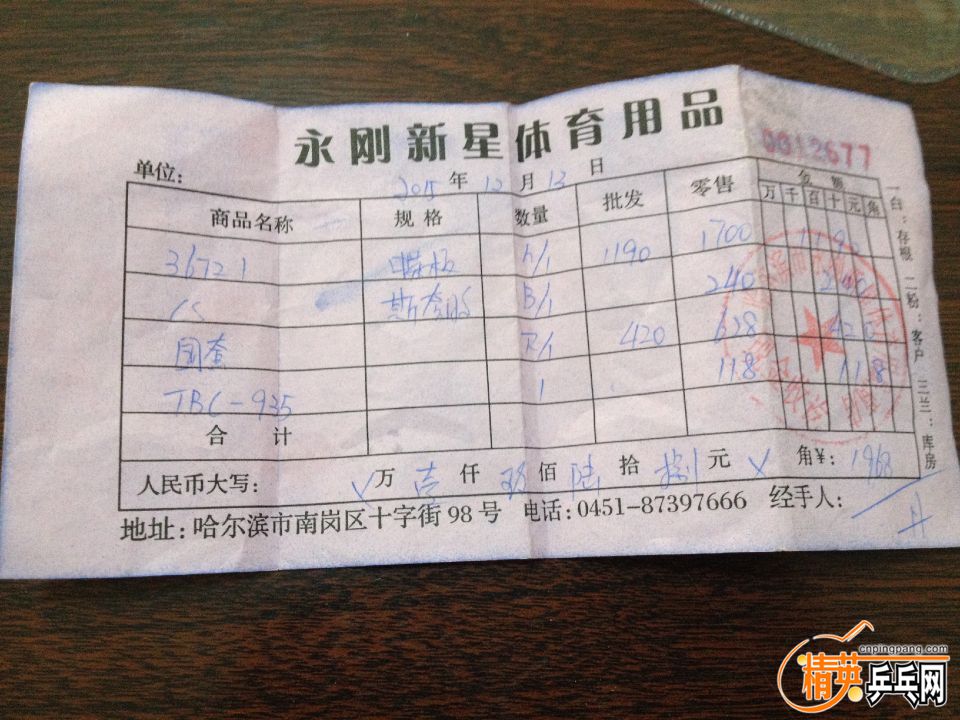 永刚新星体育用品
0012677
单位：
2015 年 12 月 13 日
商品名称 规格 数量 批发 零售 金额
万 千 百 十 元 角
36721 1/1 1190 1700 1190
15 B/1 240 240
国套 R/1 420 638 420
TBC-935 1 118 118
合计
人民币大写： 万 壹 仟 玖 佰 陆 拾 捌 元 角 ¥： 1968
地址：哈尔滨市南岗区十字街98号 电话：0451-87397666 经手人：
一白：存根 二粉：客户 三兰：库房
cnpingpang.com
精英乒乓网